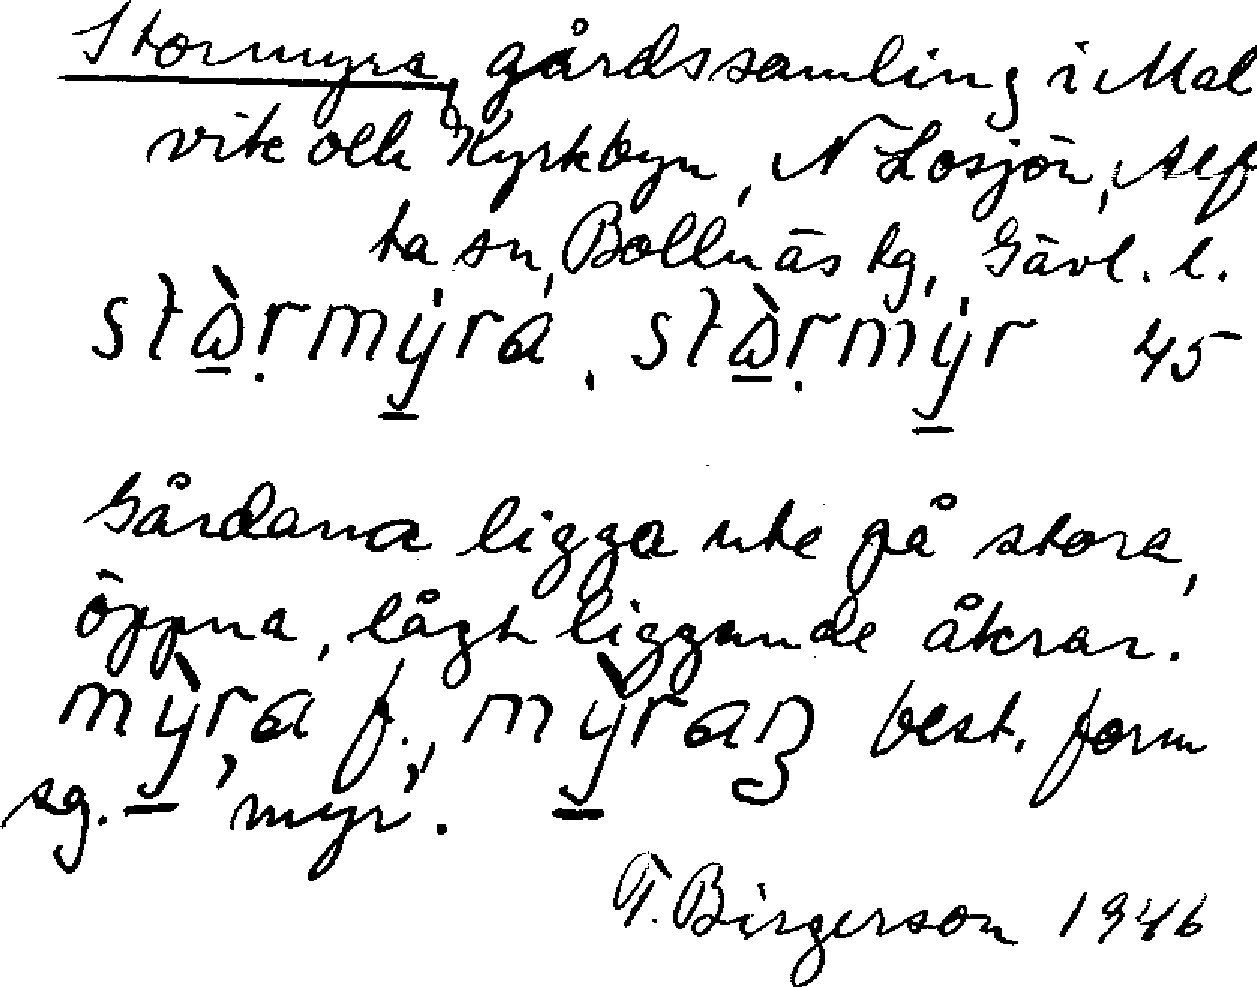 Stormyra, gårdssamling i Mal
vik och Kyrkbyn, N Losjön, Alf
ta sn, Bollnäs tg, Gävl. l.
stɷ̠̀ṛmẏ̠ra, stɷ̠̀ṛmẏ̠r 45
Gårdarna ligga ute på stora,
öppna, lågt liggande åkrar.
mỳ̠ra f., my̠̌raɳ best. form
sg. 'myr'.
T. Birgerson 1946